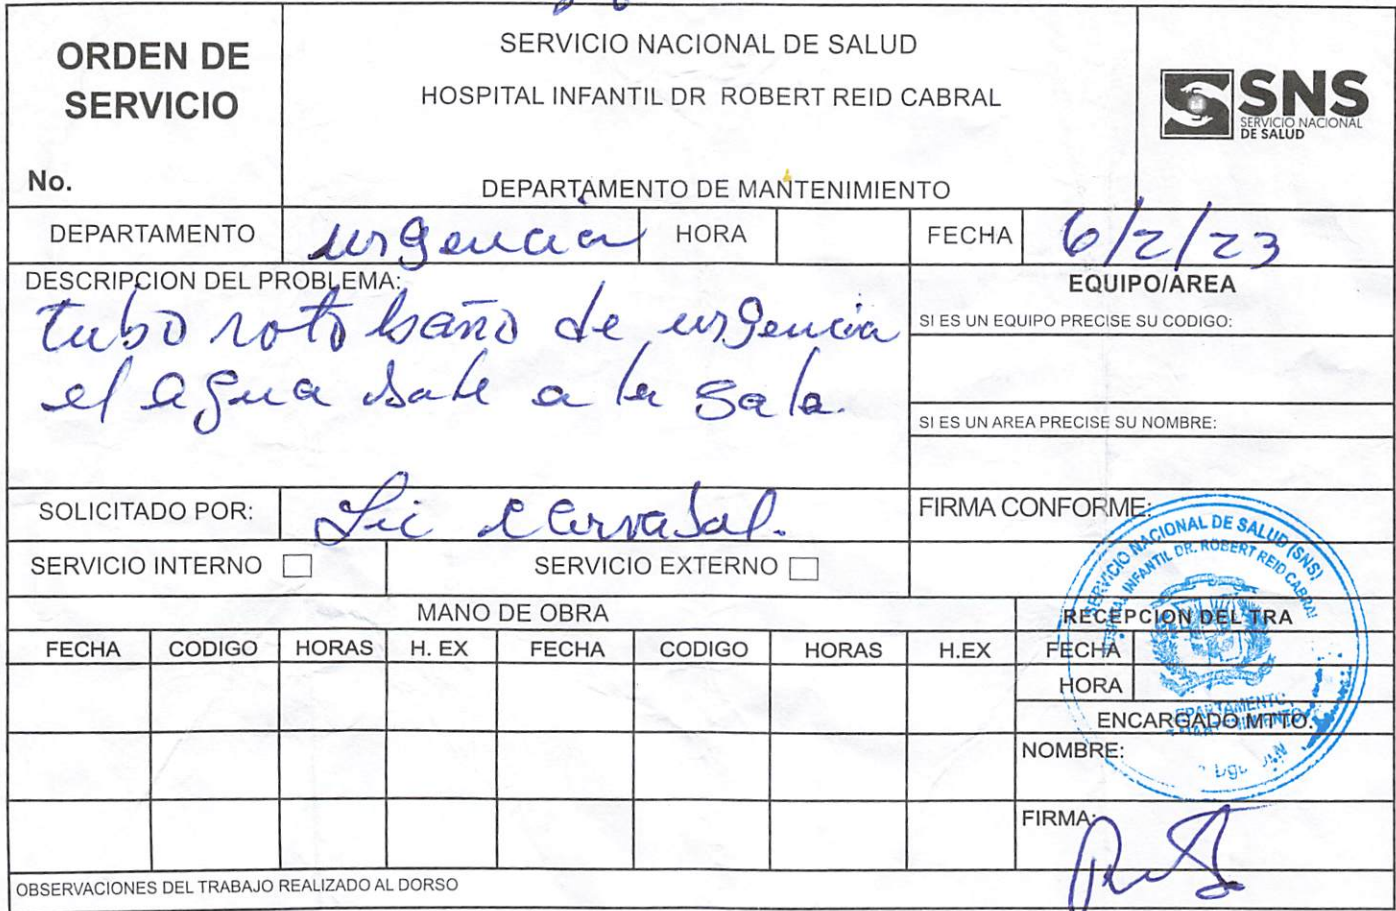 ORDEN DE
SERVICIO
No.
SERVICIO NACIONAL DE SALUD
HOSPITAL INFANTIL DR ROBERT REID CABRAL
DEPARTAMENTO DE MANTENIMIENTO
SNS
SERVICIO NACIONAL
DE SALUD
DEPARTAMENTO urgencia HORA FECHA 6/2/23
DESCRIPCION DEL PROBLEMA:
tubo roto baño de urgencia
el agua sale a la sala.
EQUIPO/AREA
SI ES UN EQUIPO PRECISE SU CODIGO:
SI ES UN AREA PRECISE SU NOMBRE:
SOLICITADO POR: Lic Carvajal.
FIRMA CONFORME:
SERVICIO INTERNO SERVICIO EXTERNO
MANO DE OBRA
FECHA CODIGO HORAS H. EX FECHA CODIGO HORAS H.EX
RECEPCION DEL TRA
FECHA
HORA
ENCARGADO MTTO.
NOMBRE:
FIRMA:
OBSERVACIONES DEL TRABAJO REALIZADO AL DORSO
SERVICIO NACIONAL DE SALUD (SNS)
INFANTIL DR. ROBERT REID CABRAL